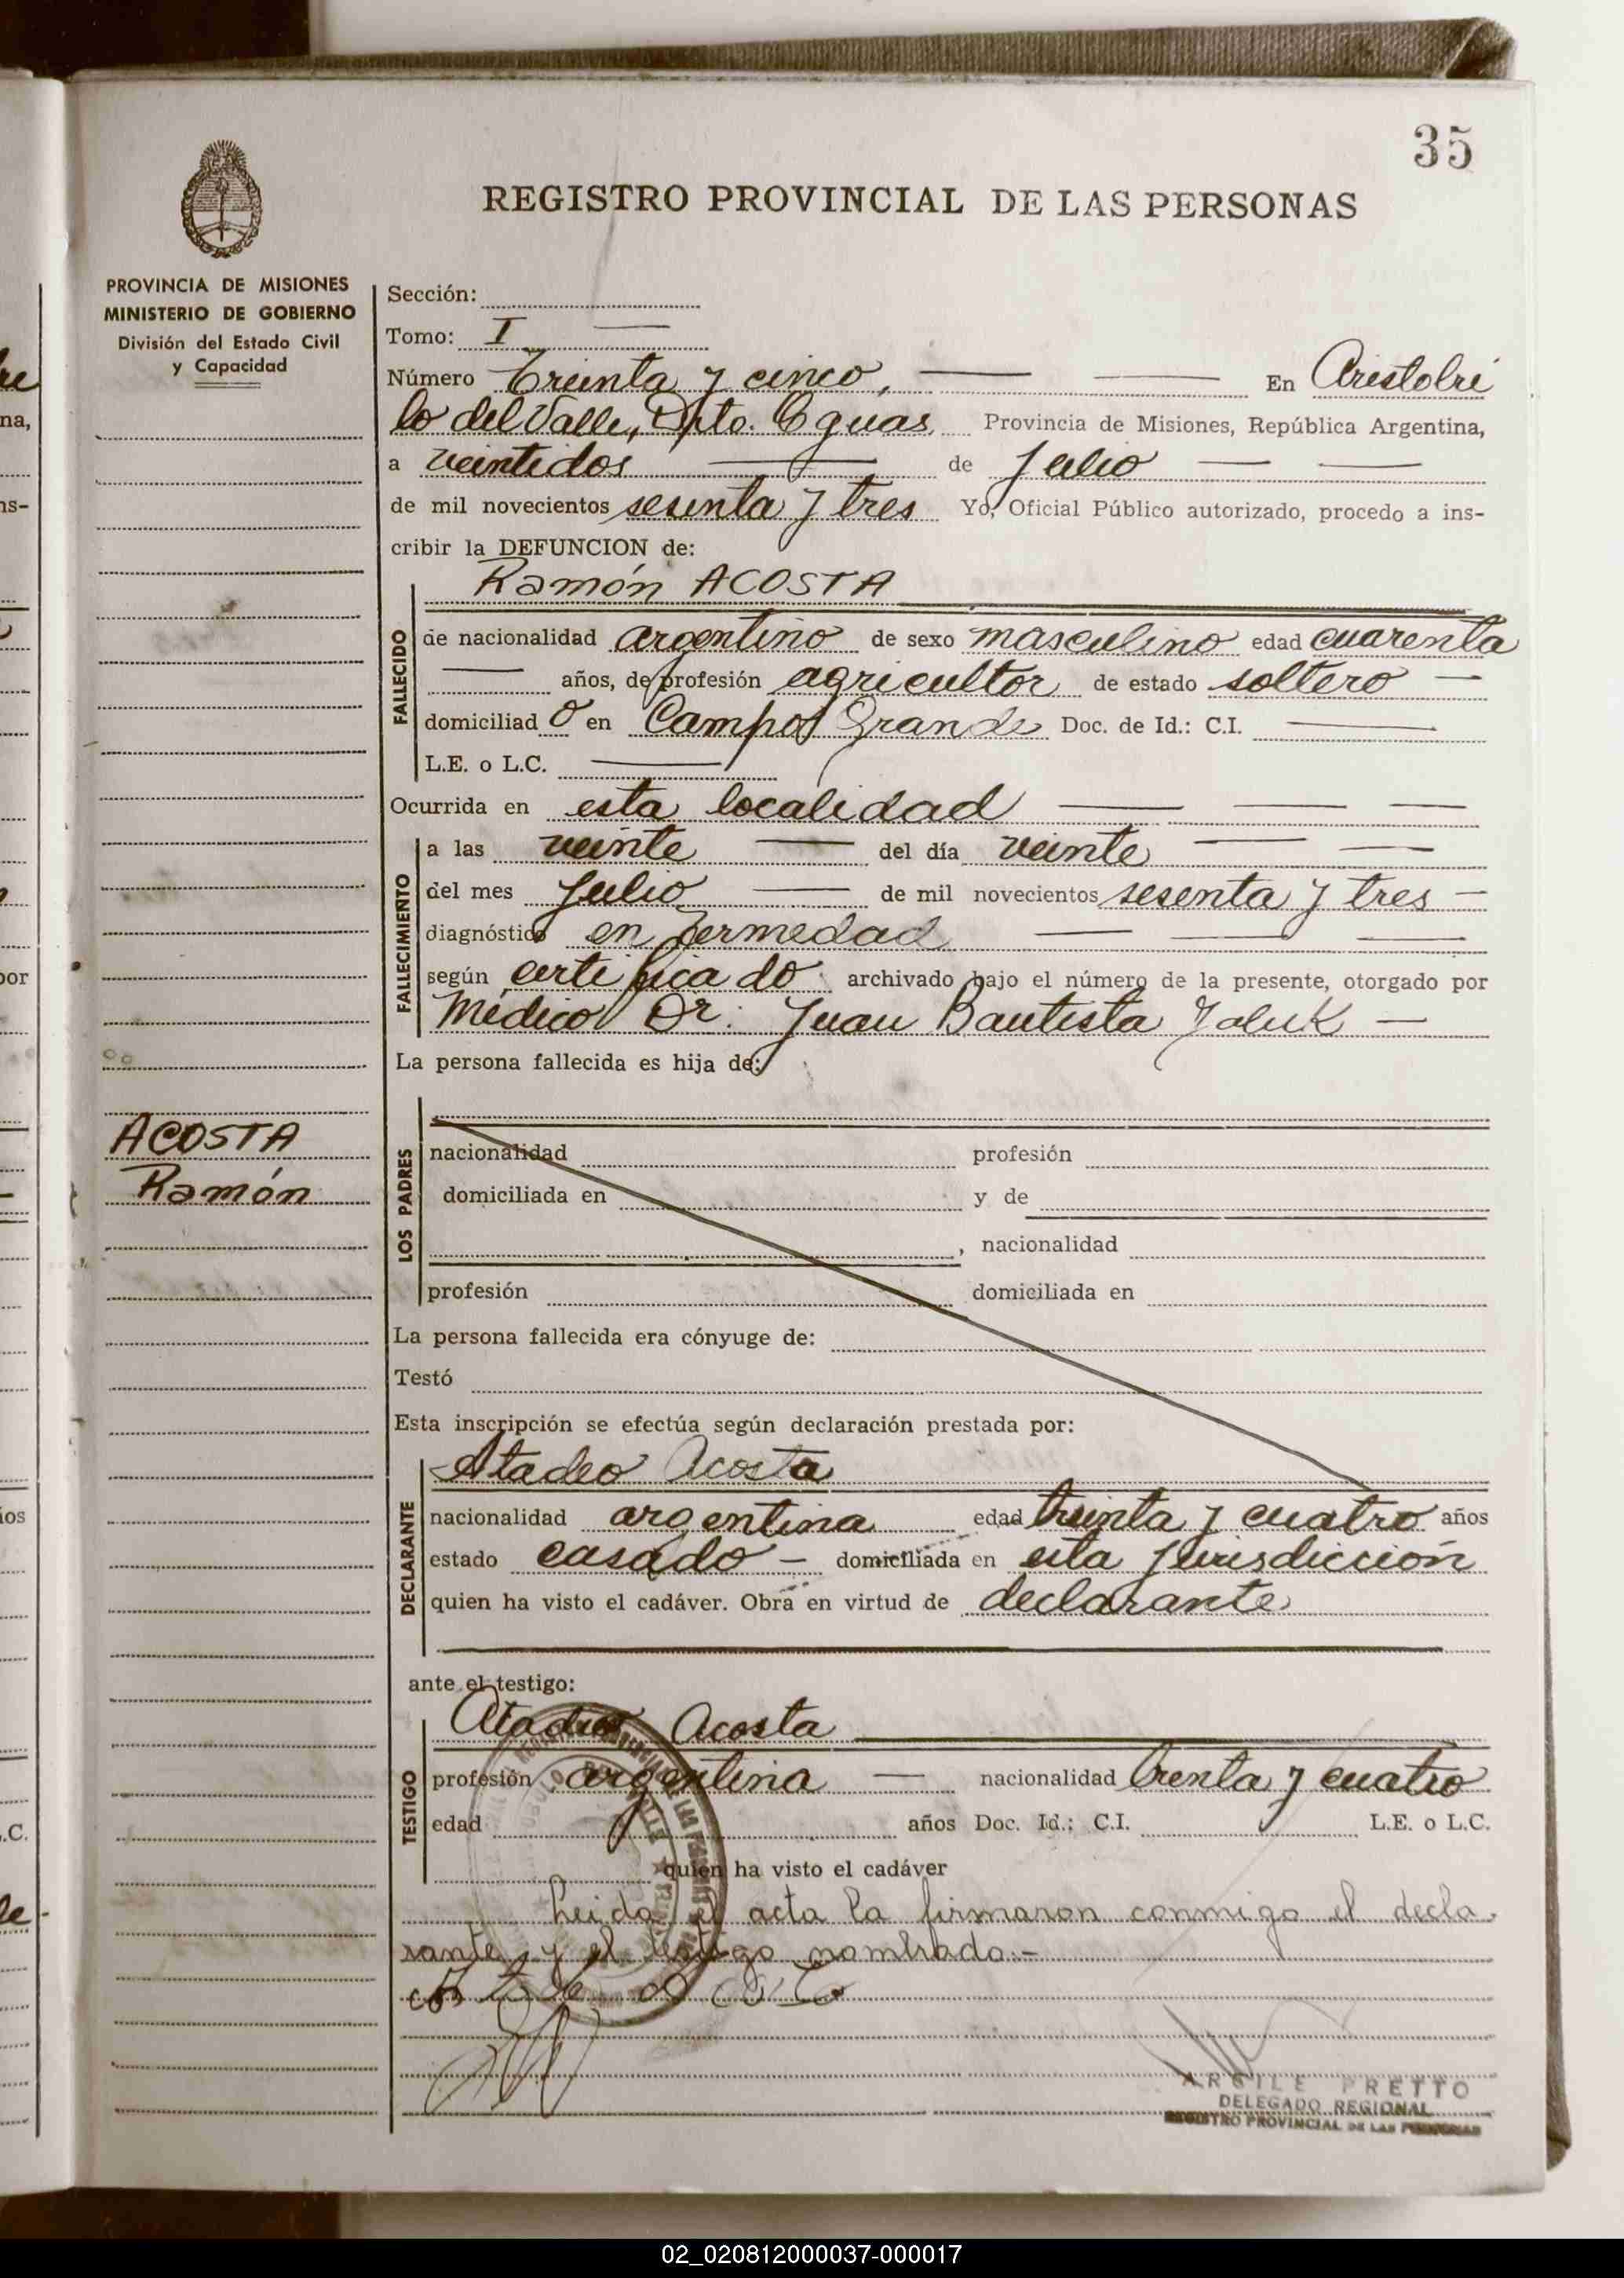 35
REGISTRO PROVINCIAL DE LAS PERSONAS
PROVINCIA DE MISIONES
MINISTERIO DE GOBIERNO
División del Estado Civil
y Capacidad
Sección:
Tomo: I
Número Treinta y cinco, En Aristóbu
lo del Valle, Dpto. Cguas Provincia de Misiones, República Argentina,
a veintidos de Julio
de mil novecientos sesenta y tres Yo, Oficial Público autorizado, procedo a ins-
cribir la DEFUNCION de:
Ramón ACOSTA
FALLECIDO
de nacionalidad argentino de sexo masculino edad cuarenta
años, de profesión agricultor de estado soltero
domiciliad o en Campo Grande Doc. de Id.: C.I.
L.E. o L.C.
Ocurrida en esta localidad
FALLECIMIENTO
a las veinte del día veinte
del mes Julio de mil novecientos sesenta y tres
diagnóstico enfermedad
según certificado archivado bajo el número de la presente, otorgado por
Médico Dr: Juan Bautista
La persona fallecida es hija de:
ACOSTA
Ramón
LOS PADRES
nacionalidad profesión
domiciliada en y de
, nacionalidad
profesión domiciliada en
La persona fallecida era cónyuge de:
Testó
Esta inscripción se efectúa según declaración prestada por:
DECLARANTE
Atadeo Acosta
nacionalidad argentina edad treinta y cuatro años
estado casado - domiciliada en esta jurisdicción
quien ha visto el cadáver. Obra en virtud de declarante
ante el testigo:
TESTIGO
Acosta
profesión argentina nacionalidad trenta y cuatro
edad años Doc. Id.: C.I. L.E. o L.C.
quien ha visto el cadáver
Leida el acta la firmaron conmigo el decla-
rante y el testigo nombrado.-
ARGILE PRETTO
DELEGADO REGIONAL
REGISTRO PROVINCIAL DE LAS PERSONAS
02_020812000037-000017